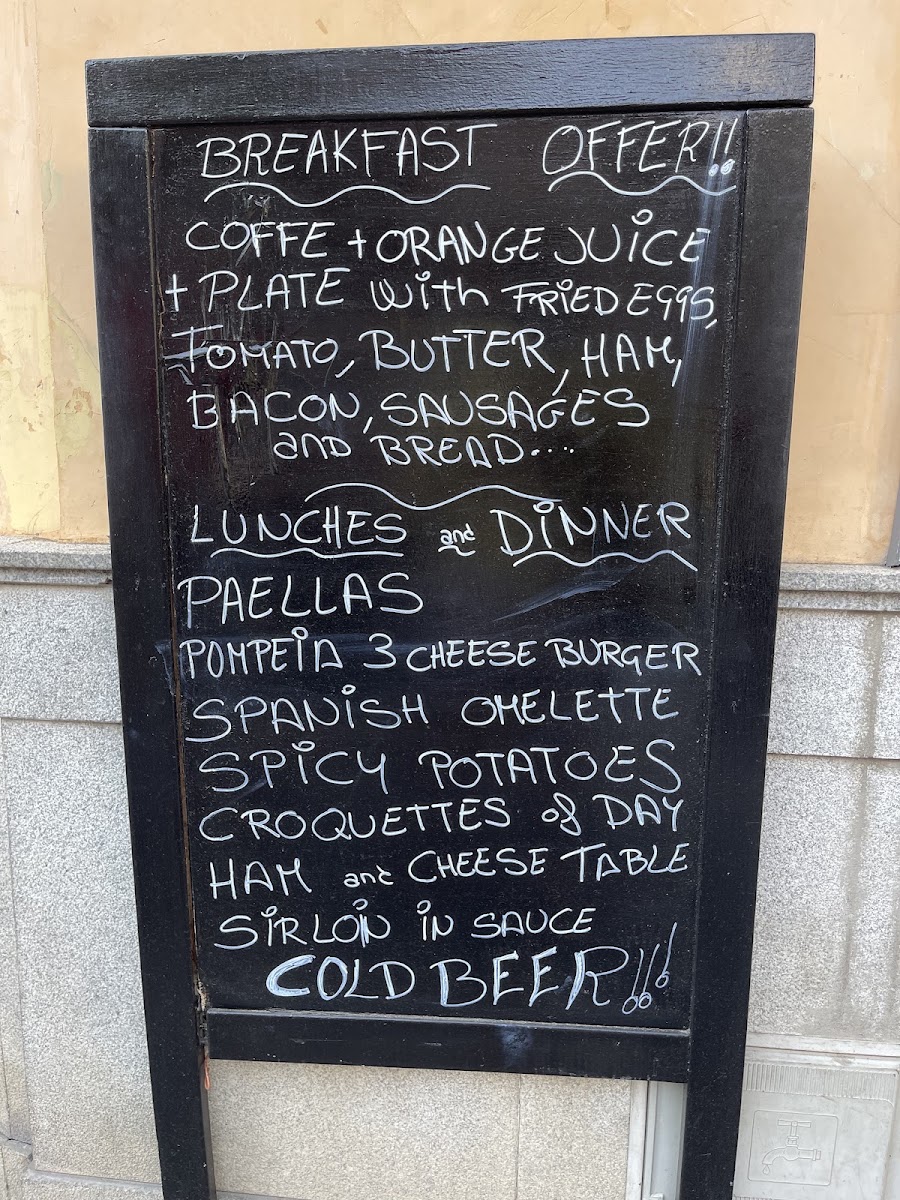 BREAKFAST OFFER!!
COFFE + ORANGE JUICE
+ PLATE with FRIED EGGS,
TOMATO, BUTTER, HAM,
BACON, SAUSAGES
and BREAD....
LUNCHES and DINNER
PAELLAS
POMPEIA 3 CHEESE BURGER
SPANISH OMELETTE
SPICY POTATOES
CROQUETTES of DAY
HAM and CHEESE TABLE
SIRLOIN IN SAUCE
COLD BEER!!!